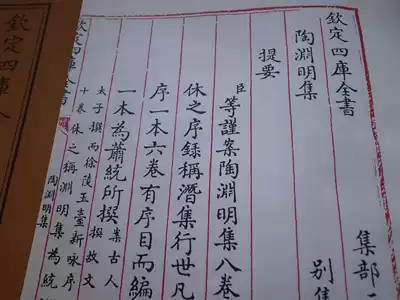 欽定四庫全書
集部
陶淵明集
别集
提要
臣等謹案陶淵明集八卷
休之序録稱潛集行世凡
序一本六卷有序目而編
一本為蕭統所撰
案古人
撰故文
太子撰而徐陵玉臺新咏序
十卷休之稱淵明集為統
欽定四庫全書
陶淵明集
欽定四庫